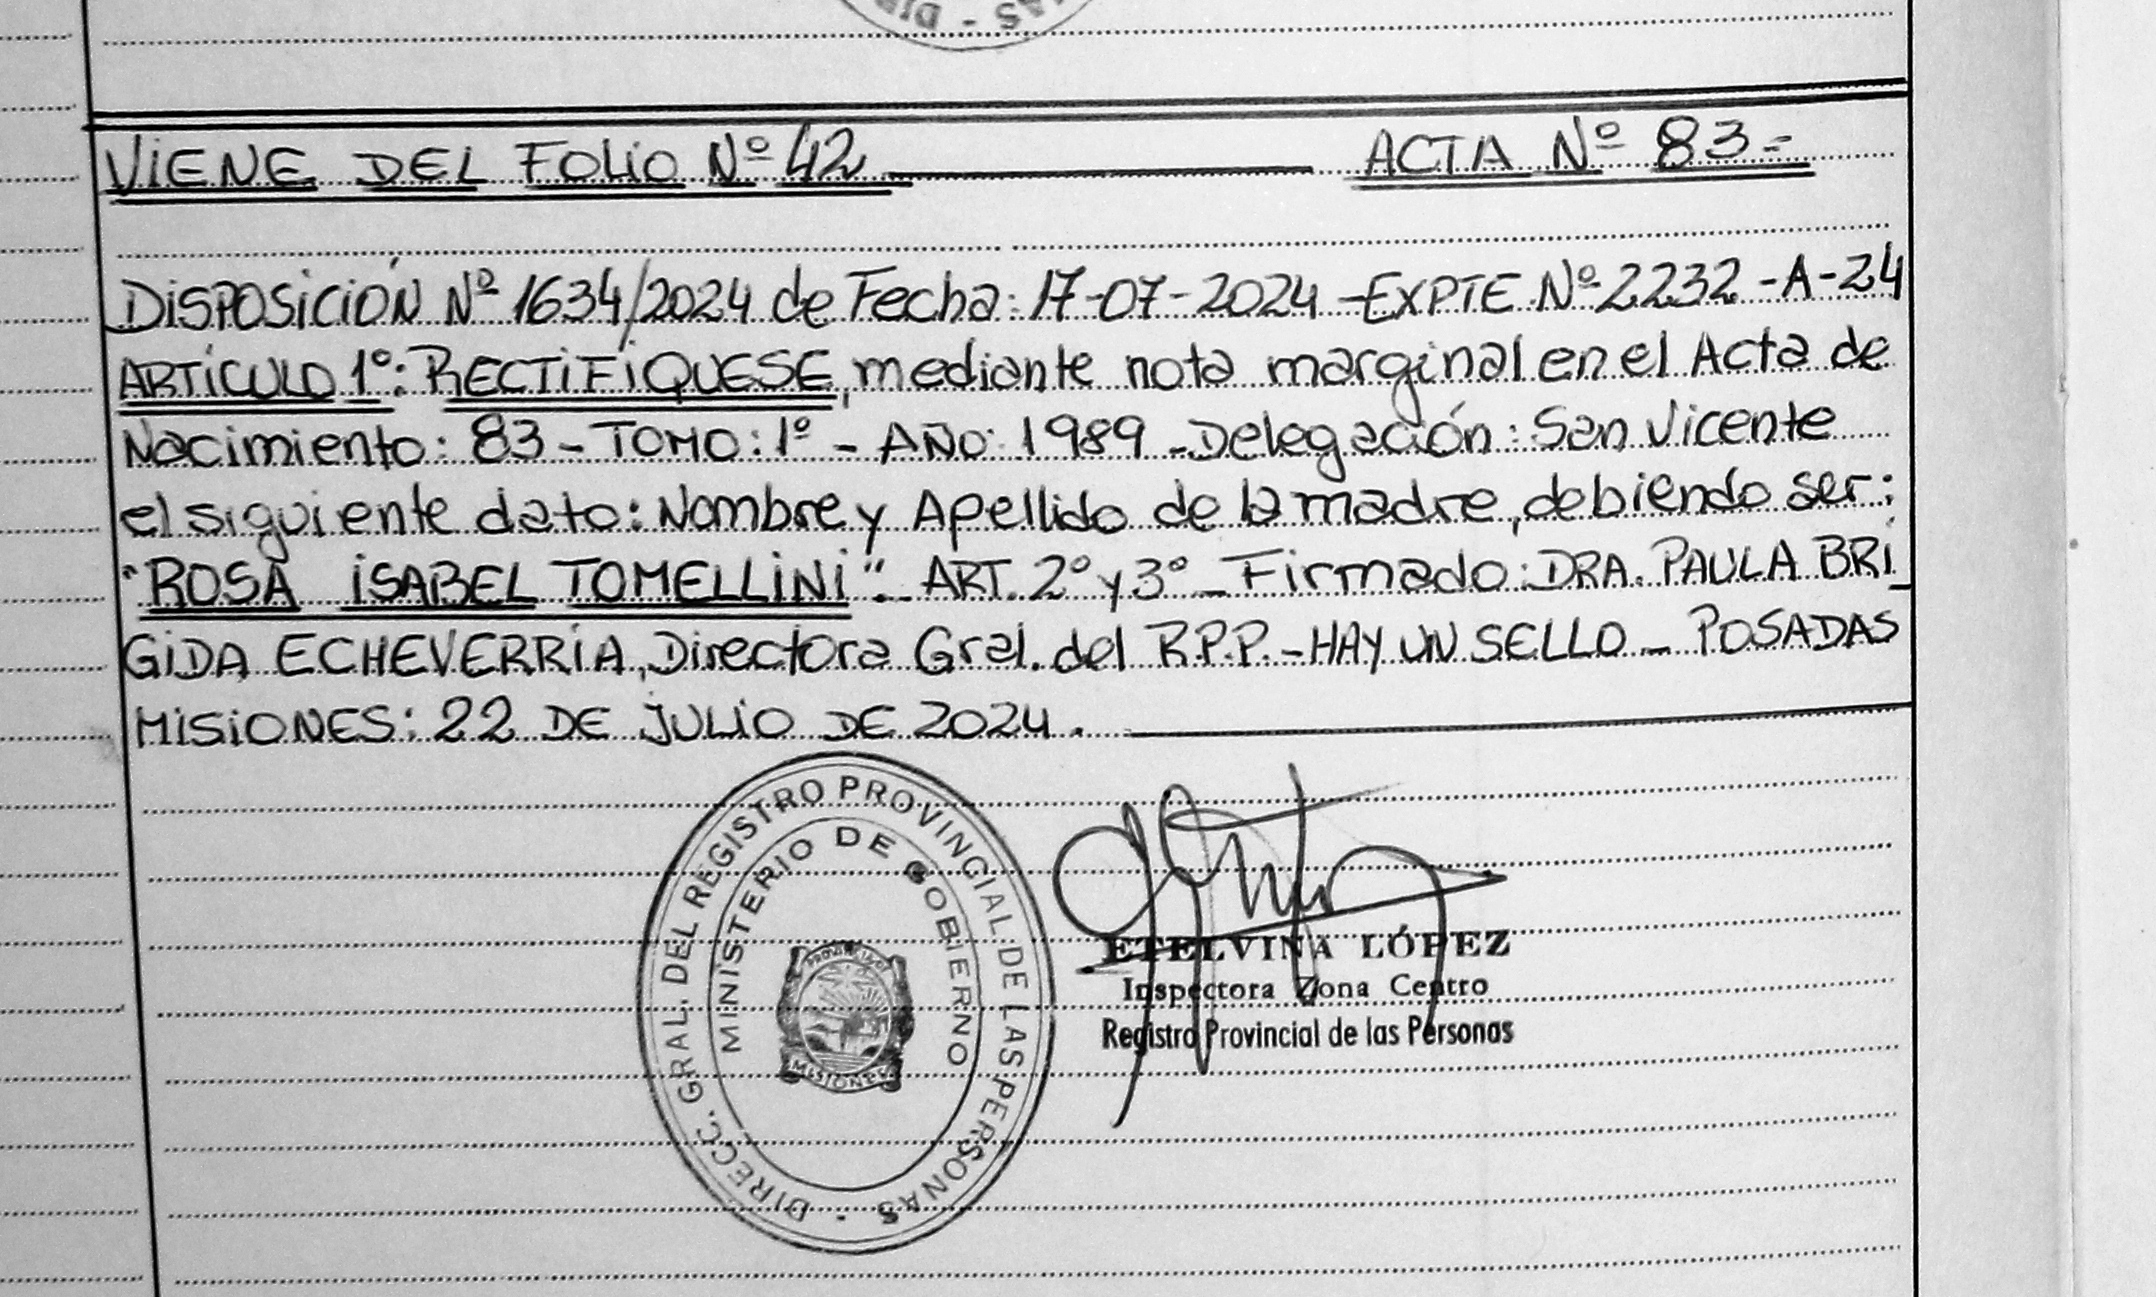 VIENE DEL FOLIO Nº 42 ACTA Nº 83=
DISPOSICIÓN Nº 1634/2024 de Fecha: 17-07-2024 - EXPTE Nº 2232-A-24
ARTÍCULO 1º: RECTIFIQUESE, mediante nota marginal en el Acta de
Nacimiento: 83 - TOMO: 1º - AÑO: 1989 - Delegación: San Vicente
el siguiente dato: Nombre y Apellido de la madre, debiendo ser:
"ROSA ISABEL TOMELLINI". ART. 2º y 3º - Firmado: DRA. PAULA BRI_
GIDA ECHEVERRÍA, Directora Gral. del R.P.P. - HAY UN SELLO - POSADAS
MISIONES: 22 DE JULIO DE 2024.
DIRECC. GRAL. DEL REGISTRO PROVINCIAL DE LAS PERSONAS -
MINISTERIO DE GOBIERNO
MISIONES
ETELVINA LÓPEZ
Inspectora Zona Centro
Registro Provincial de las Personas